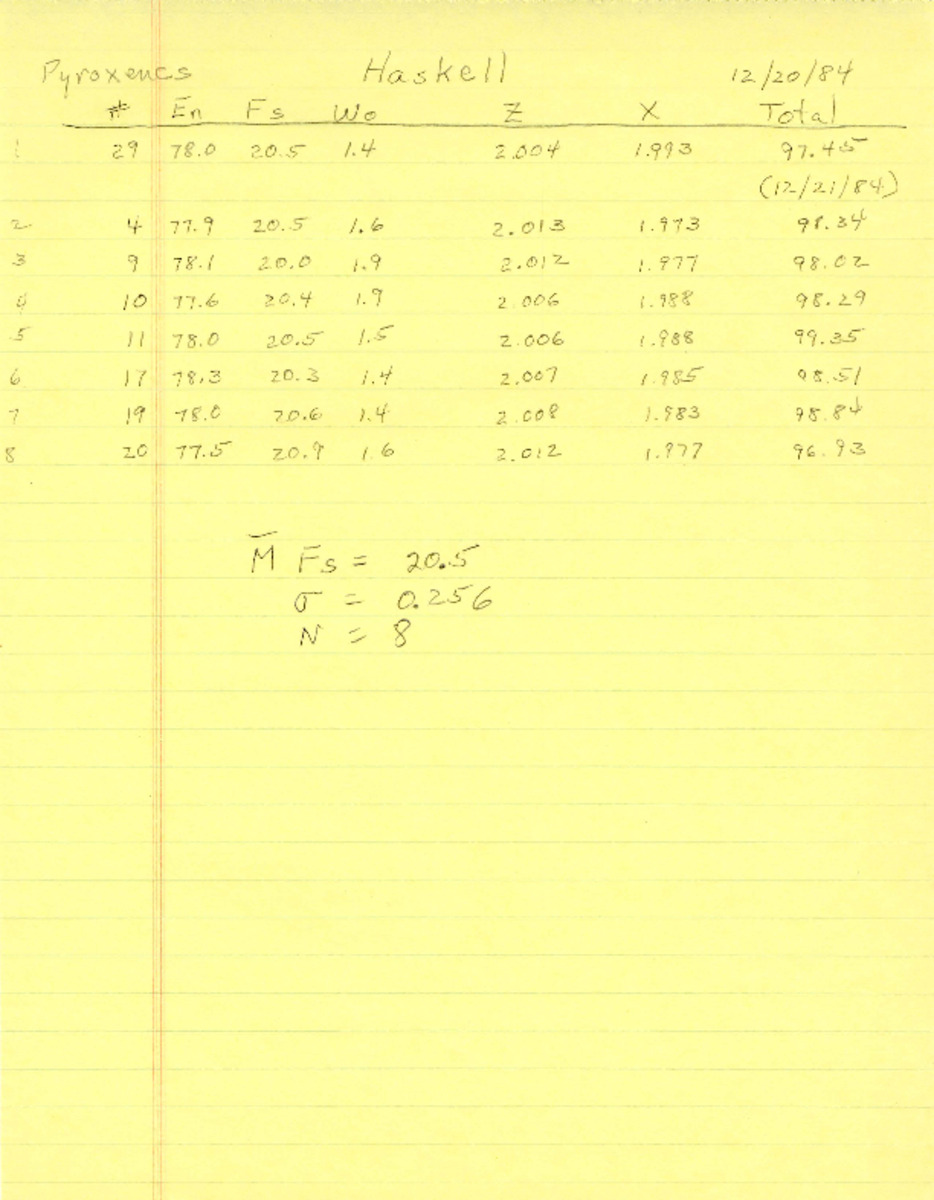 Pyroxenes Haskell 12/20/84
# En Fs Wo Z X Total
1 29 78.0 20.5 1.4 2.004 1.993 97.45
(12/21/84)
2 4 77.9 20.5 1.6 2.013 1.973 98.34
3 9 78.1 20.0 1.9 2.012 1.977 98.02
4 10 77.6 20.4 1.9 2.006 1.988 98.29
5 11 78.0 20.5 1.5 2.006 1.988 99.35
6 17 78.3 20.3 1.4 2.007 1.985 98.51
7 19 78.0 20.6 1.4 2.008 1.983 98.84
8 20 77.5 20.9 1.6 2.012 1.977 96.93
M̅ Fs = 20.5
σ = 0.256
N = 8